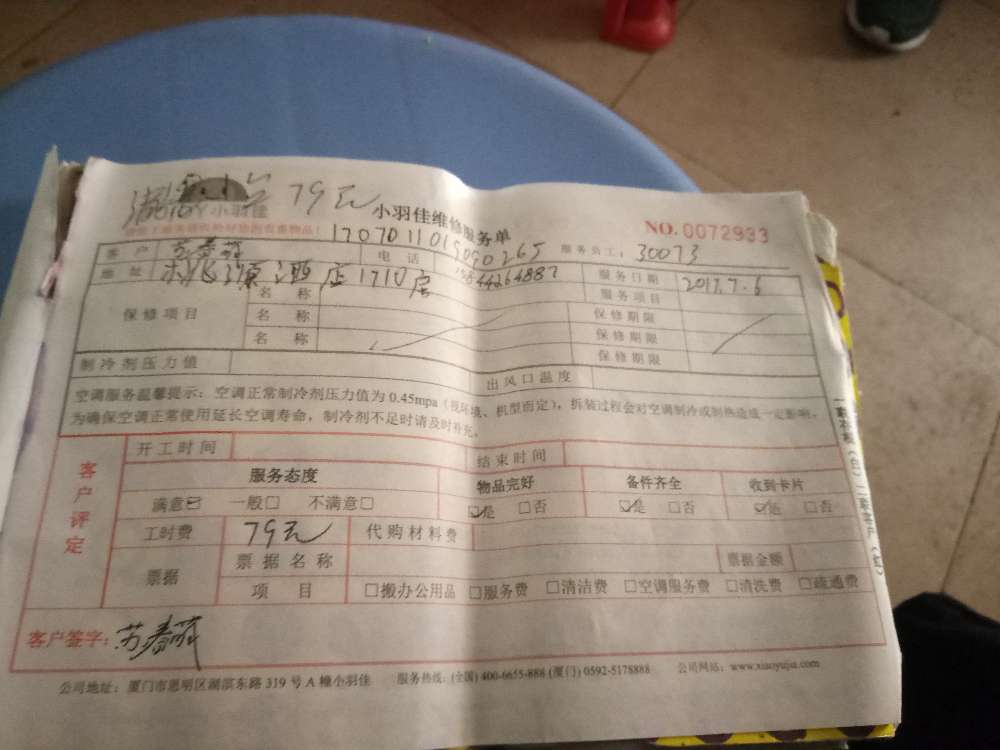 79元
小羽佳
小羽佳维修服务单
NO. 0072933
1707011015090265
客户 苏春 电话 服务员工: 30073
地址 酒店1710房 15844264887 服务日期 2017.7.6
名称 服务项目
保修项目 名称 保修期限
名称 保修期限
保修期限
制冷剂压力值 出风口温度
空调服务温馨提示:空调正常制冷剂压力值为0.45mpa(视环境、机型而定),拆装过程会对空调制冷或制热造成一定影响,
为确保空调正常使用延长空调寿命,制冷剂不足时请及时补充。
客户评定
开工时间 结束时间
服务态度 物品完好 备件齐全 收到卡片
满意☑ 一般□ 不满意□ ☑是 □否 ☑是 □否 ☑是 □否
工时费 79元 代购材料费
票据 票据名称 票据金额
项目 □搬办公用品 □服务费 □清洁费 □空调服务费 □清洗费 □疏通费
客户签字: 苏春
公司地址: 厦门市思明区湖滨东路 319 号 A 幢小羽佳 服务热线: (全国) 400-6655-888 (厦门) 0592-5178888 公司网站: www.xiaoyujia.com